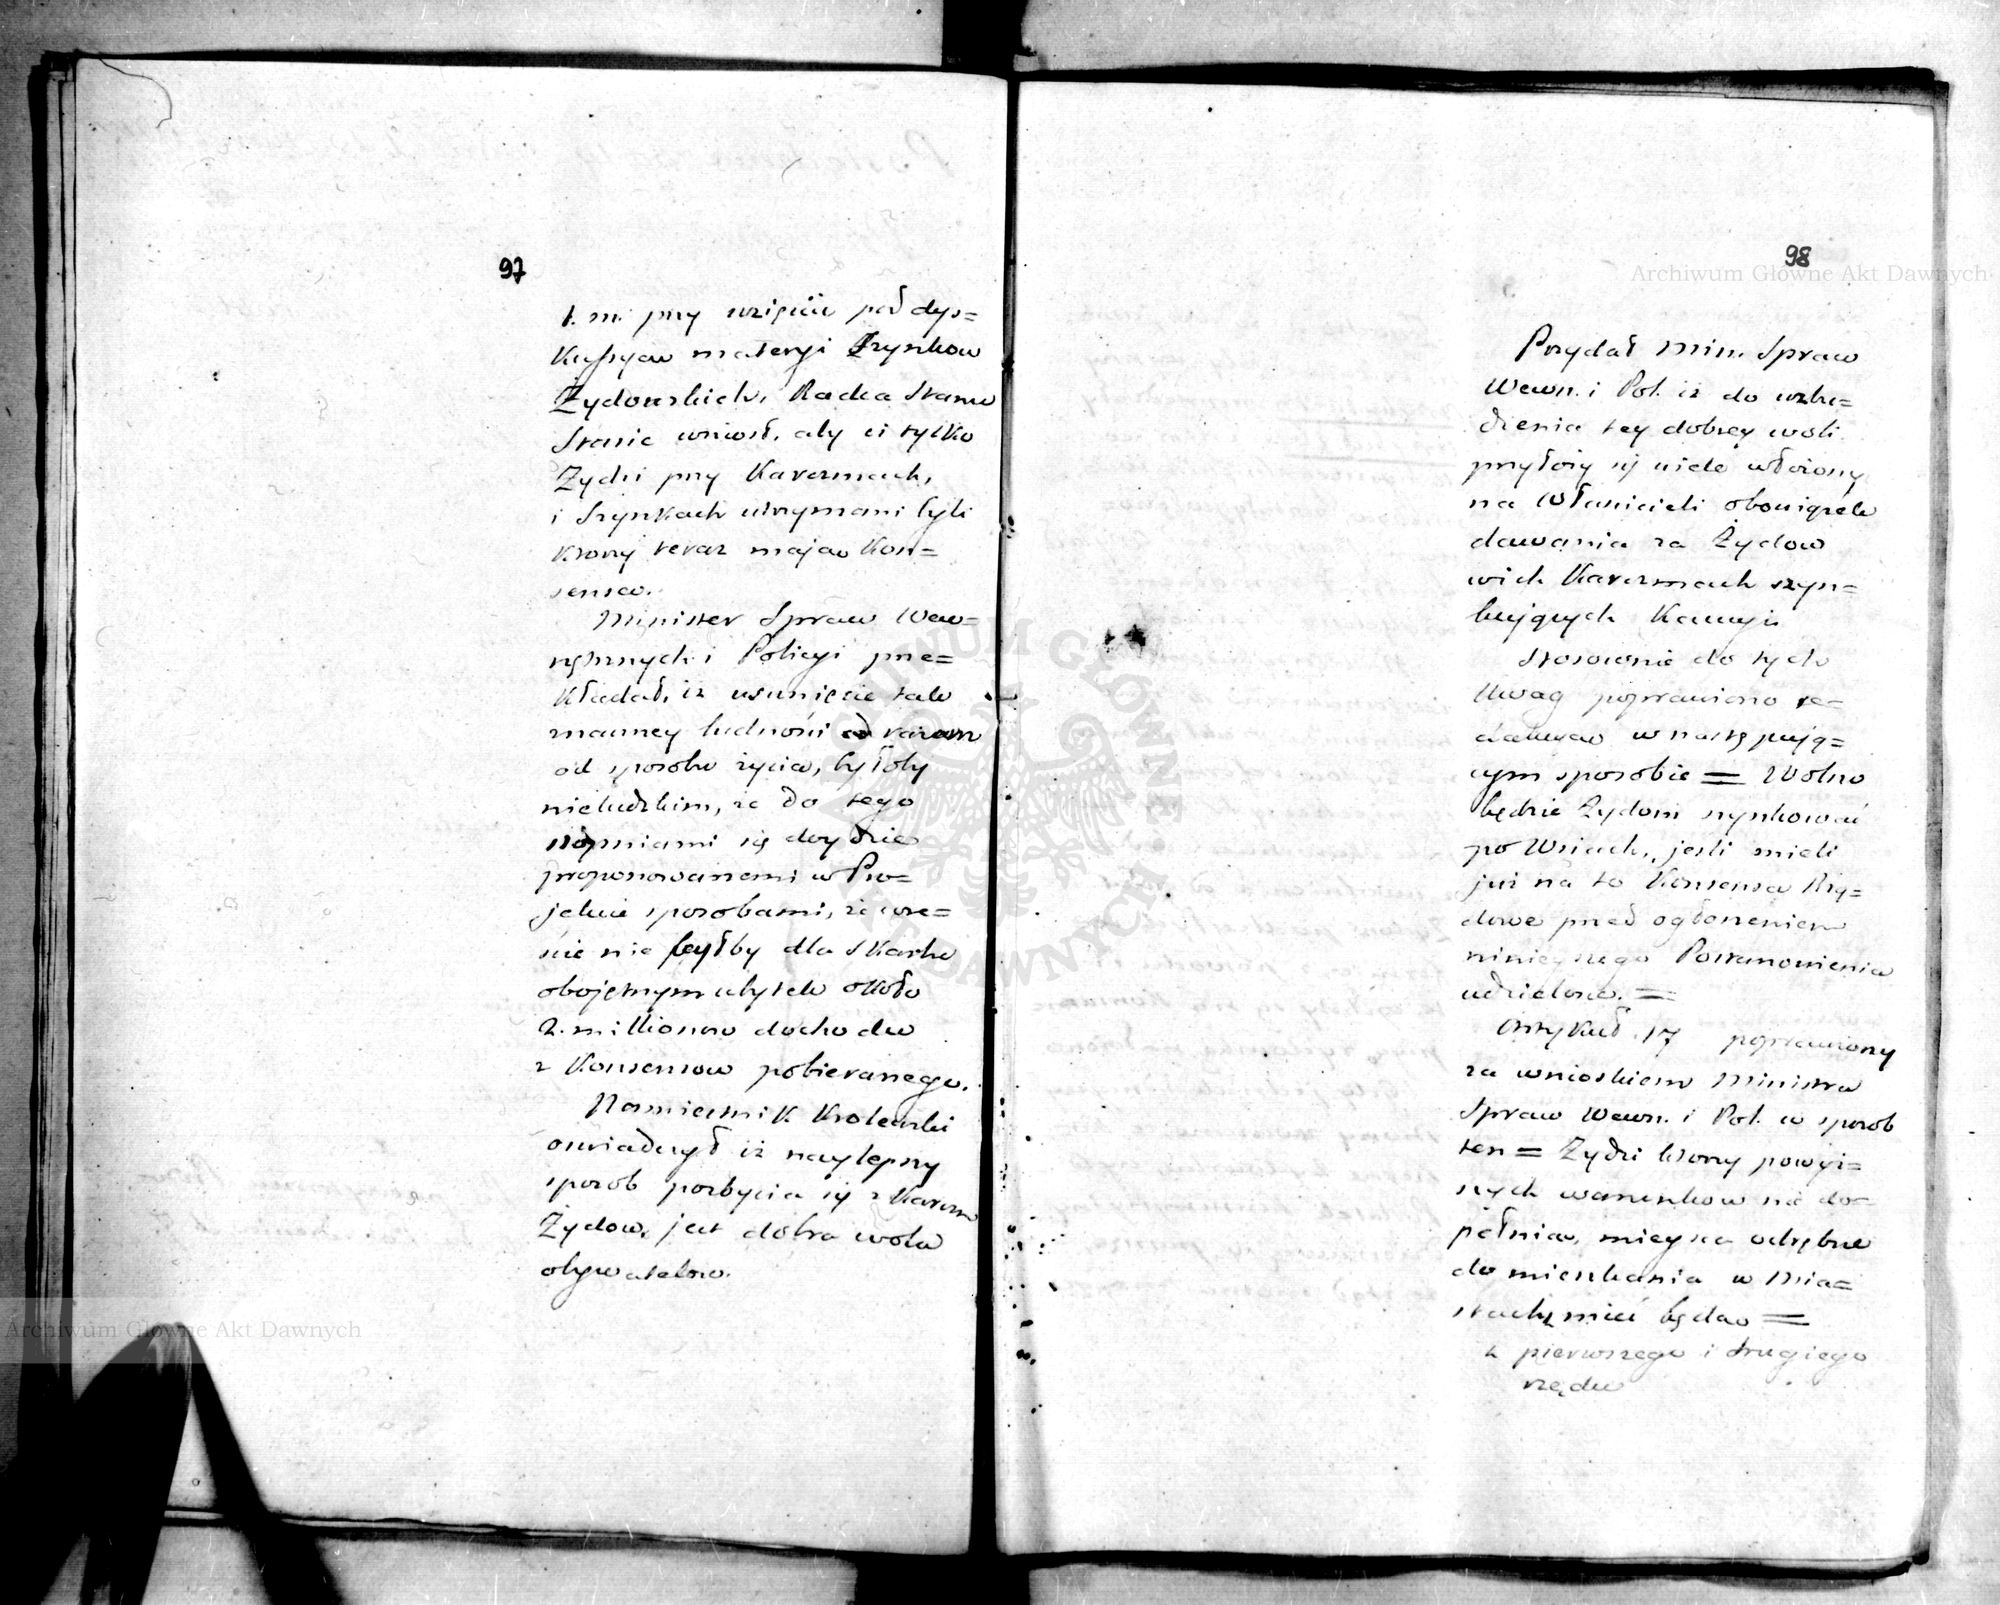 97
t. m. przy wzięciu pod dys=
kussyą materyi Szynkow
Żydowskich, Radca Stanu
Stasic wniosł, aby ci tylko
Żydzi przy Karczmach,
i Szynkach utrzymani byli
ktorzy teraz mają Kon=
sensa.
Minister Spraw Wew=
nętrznych i Policyi prze=
kładał, iż usunięcie tak
znaczney ludności od razu
od sposobu życia, byłoby
nieludzkim, że do tego
stopniami się doydzie
proponowanemi w Pro=
jekcie sposobami, że wre=
ście nie byłby dla Skarbu
obojętnym ubytek około
2. millionow dochodu
z Konsensow pobieranego.
Namiestnik Krolewski
oswiadczył iż naylepszy
sposob pozbycia się z Karczm
Żydow, jest dobra wola
obywatelow.
98
Archiwum Główne Akt Dawnych
Przydał Min. Spraw
Wewn. i Pol. iż do wzbu=
dzenia tey dobrey woli
przyłoży się wiele włożony
na Właścicieli obowiązek
dawania za Żydow
w ich Karczmach szyn=
kujących Kaucyi
Stosownie do tych
Uwag poprawiono re=
dakcyą w następują=
cym sposobie = Wolno
będzie Żydom szynkować
po Wsiach, jeśli mieli
już na to Konsensa Rzą=
dowe przed ogłoszeniem
ninieyszego Postanowienia
udzielone. =
Artykuł 17 poprawiony
za wnioskiem Ministra
Spraw Wewn. i Pol. w sposob
ten = Żydzi ktorzy powyż=
szych warunkow nie do=
pełnią, mieysca odrębne
do mieszkania w Mia=
stach mieć będą =
z pierwszego i drugiego
rzędu
Archiwum Główne Akt Dawnych
ARCHIWUM GŁÓWNE AKT DAWNYCH